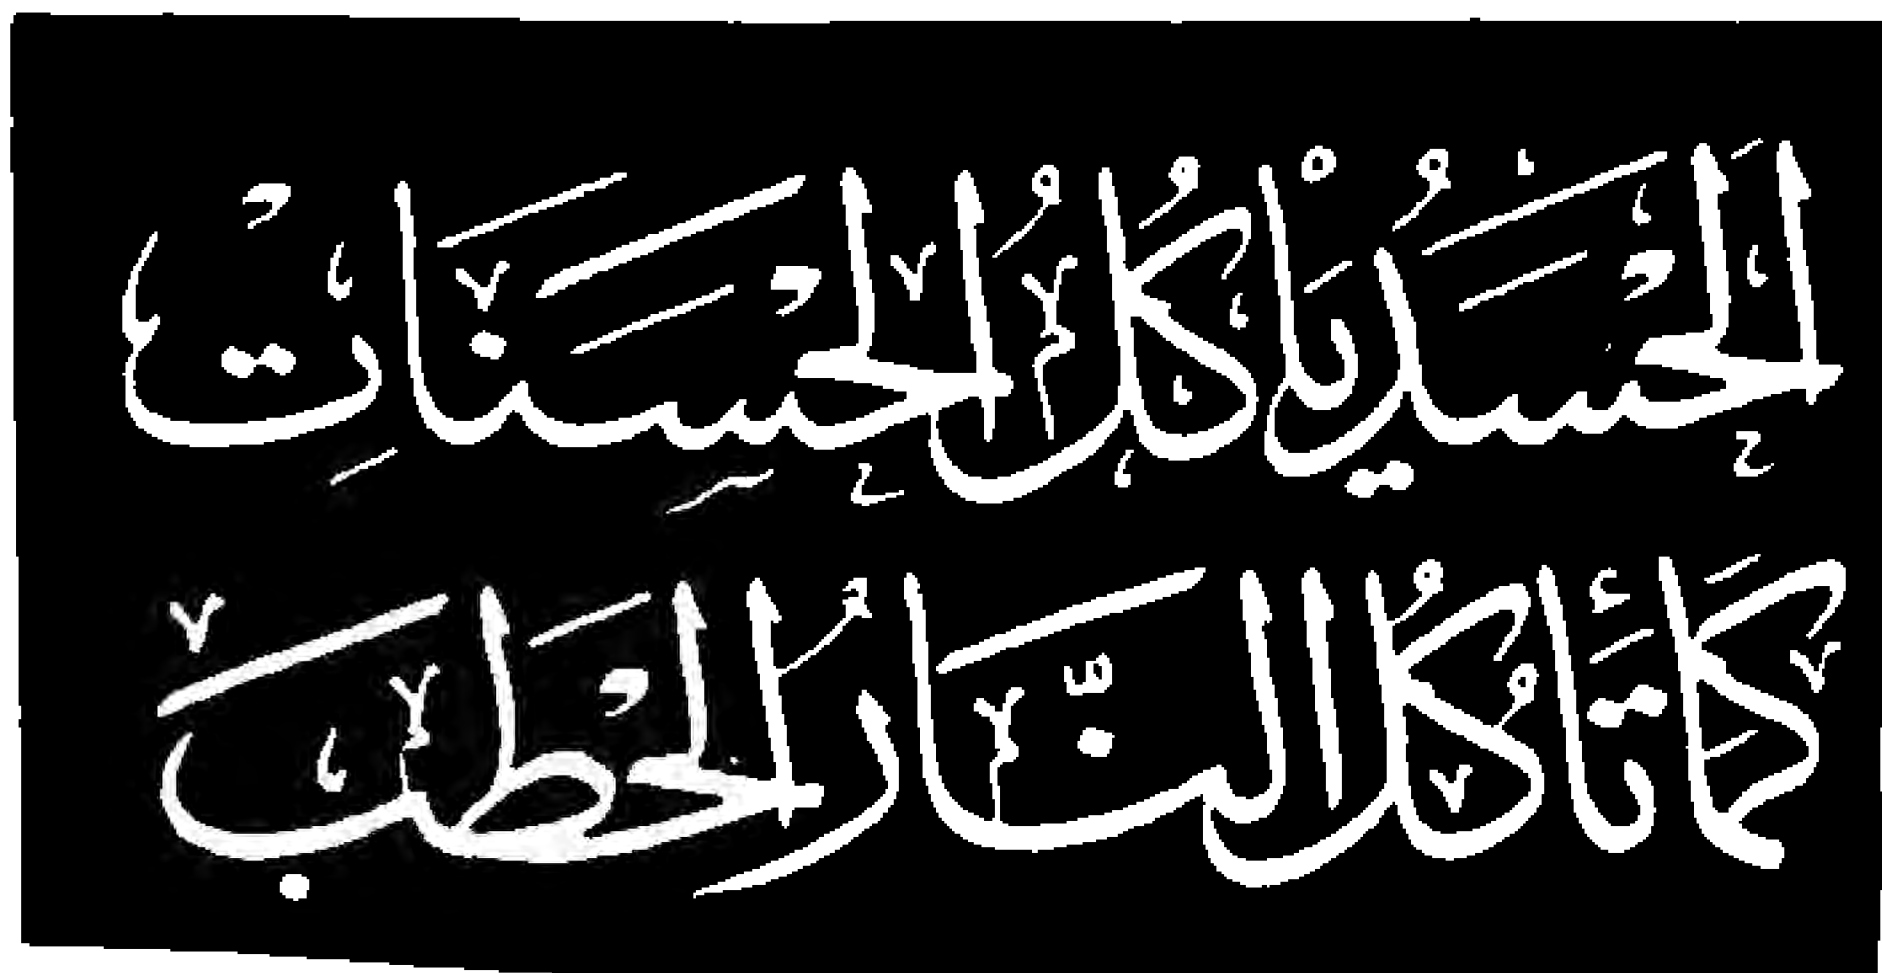 اَلْحَسَدُ يَاْكُلُ الْحَسَنَاتِ
كَمَا تَأْكُلُ النَّارُ الْحَطَبَ